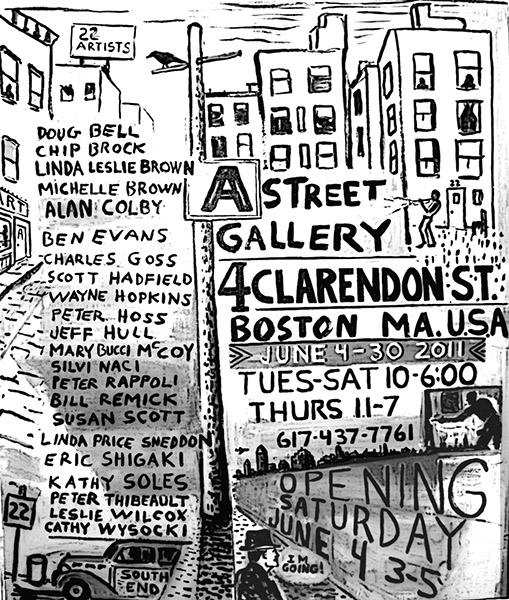 22
ARTISTS
DOUG BELL
CHIP BROCK
LINDA LESLIE BROWN
MICHELLE BROWN
ALAN COLBY
BEN EVANS
CHARLES GOSS
SCOTT HADFIELD
WAYNE HOPKINS
PETER HOSS
JEFF HULL
MARY BUCCI MCCOY
SILVI NACI
PETER RAPPOLI
BILL REMICK
SUSAN SCOTT
LINDA PRICE SNEDDON
ERIC SHIGAKI
KATHY SOLES
PETER THIBEAULT
LESLIE WILCOX
CATHY WYSOCKI
ART
22
SOUTH
END
A STREET
GALLERY
22
4 CLARENDON ST.
BOSTON MA. U.S.A
JUNE 4-30 2011
TUES-SAT 10-6:00
THURS 11-7
617-437-7761
OPENING
SATURDAY
JUNE 4 3-5
I'M
GOING!